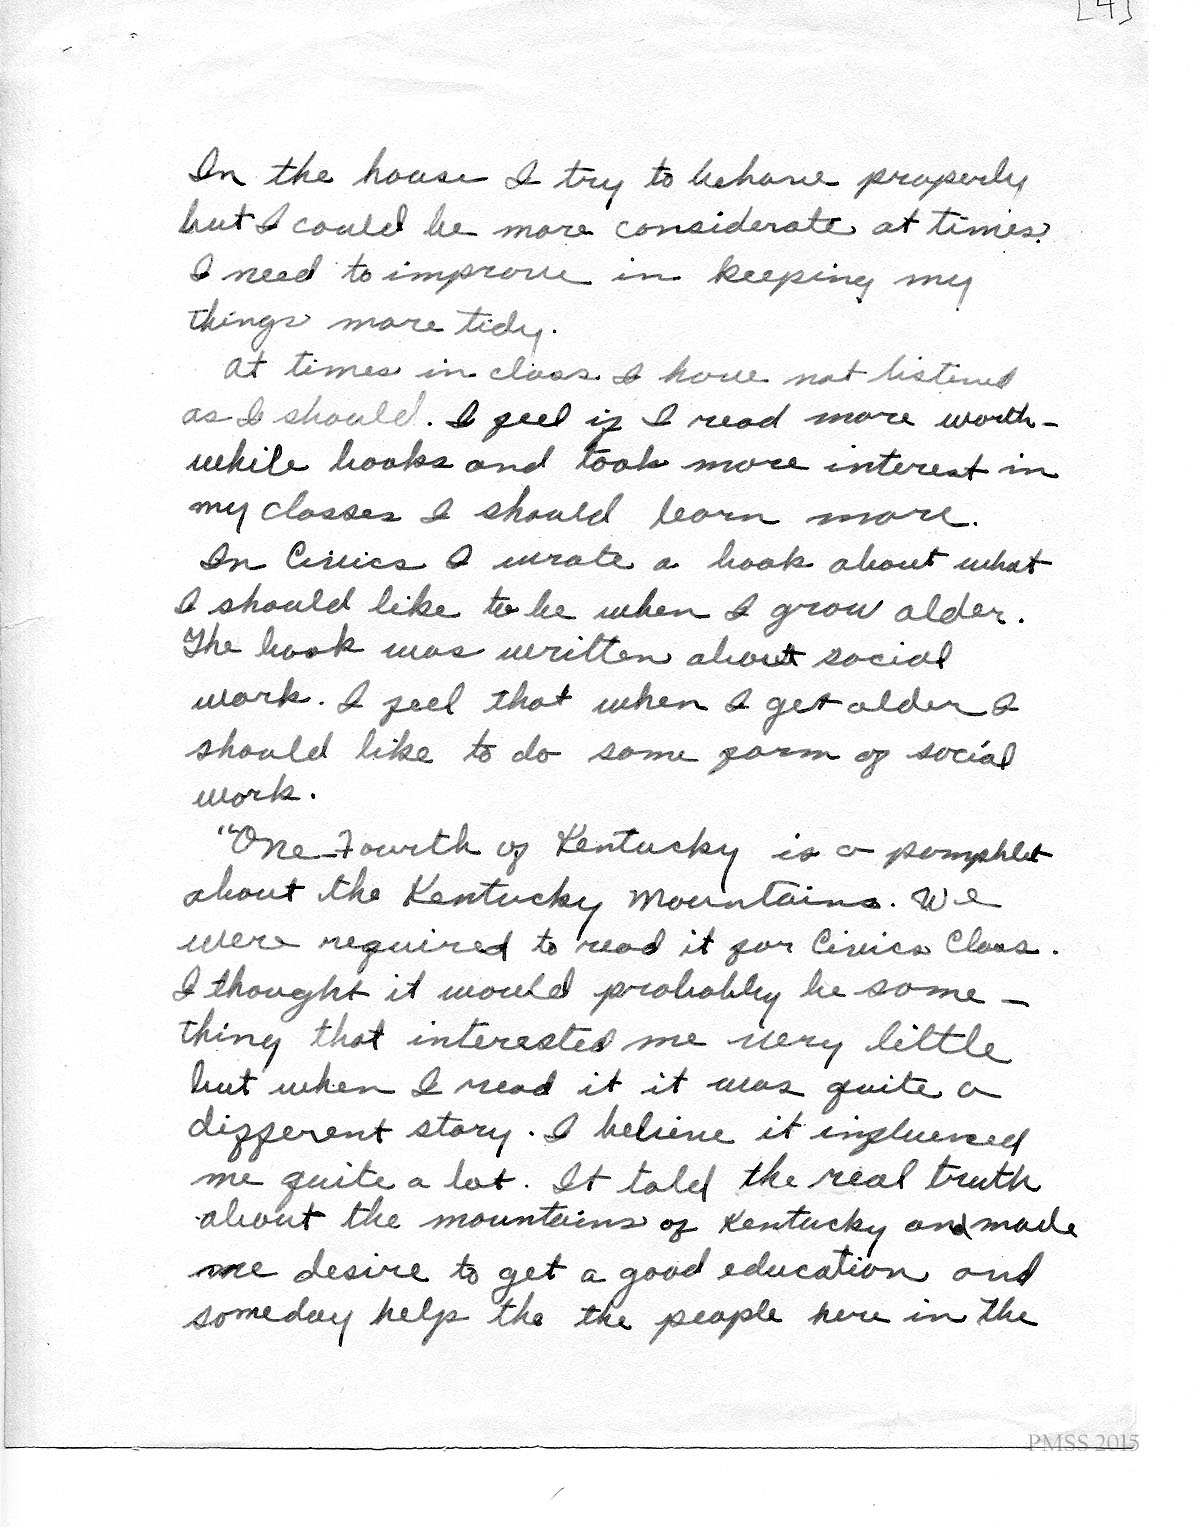 [4]
In the house I try to behave properly
but I could be more considerate at times.
I need to improve in keeping my
things more tidy.
At times in class I have not listened
as I should. I feel if I read more worth-
while books and took more interest in
my classes I should learn more.
In Civics I wrote a book about what
I should like to be when I grow older.
The book was written about social
work. I feel that when I get older I
should like to do some form of social
work.
"One Fourth of Kentucky is a pamphlet
about the Kentucky Mountains. We
were required to read it for Civics Class.
I thought it would probably be some-
thing that interested me very little
but when I read it it was quite a
different story. I believe it influenced
me quite a lot. It told the real truth
about the mountains of Kentucky and made
me desire to get a good education and
someday help the the people here in the
PMSS 2015